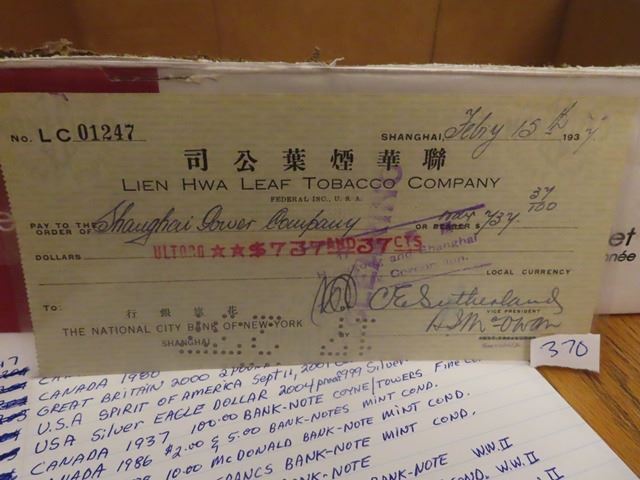 No. LC 01247
SHANGHAI, Feby 15th 1937.
司公葉煙華聯
LIEN HWA LEAF TOBACCO COMPANY
FEDERAL INC., U. S. A.
PAY TO THE ORDER OF Shanghai Power Company OR BEARER $ 737. 37/100
DOLLARS ULTODO ★★$737 AND 37 CTS
and Shanghai
LOCAL CURRENCY
To:
行銀旗花
THE NATIONAL CITY BANK OF NEW YORK
SHANGHAI
BY
C E Sutherland
VICE PRESIDENT
370
et
CANADA 1980
GREAT BRITAIN 2000 2 POUND
U.S.A SPIRIT OF AMERICA Sept 11, 2001
USA Silver EAGLE DOLLAR 2004 proof 999 Silver
CANADA 1937 100.00 BANK-NOTE COYNE/TOWERS Fine
CANADA 1986 $2.00 & 5.00 BANK-NOTES MINT COND.
10.00 McDONALD BANK-NOTE MINT COND.
FRANCS BANK-NOTE MINT COND.
BANK-NOTE
BANK-NOTE W.W.II
COND. W.W.II